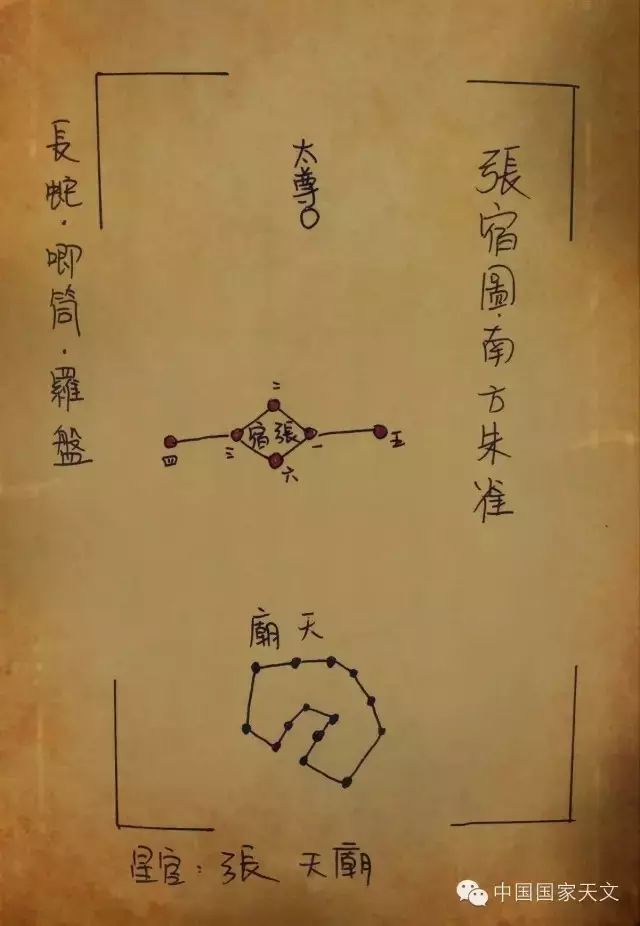 張宿圖·南方朱雀
長蛇·唧筒·羅盤
太尊
二
宿張
四
三
一
五
六
廟天
星官：張 天廟
中国国家天文